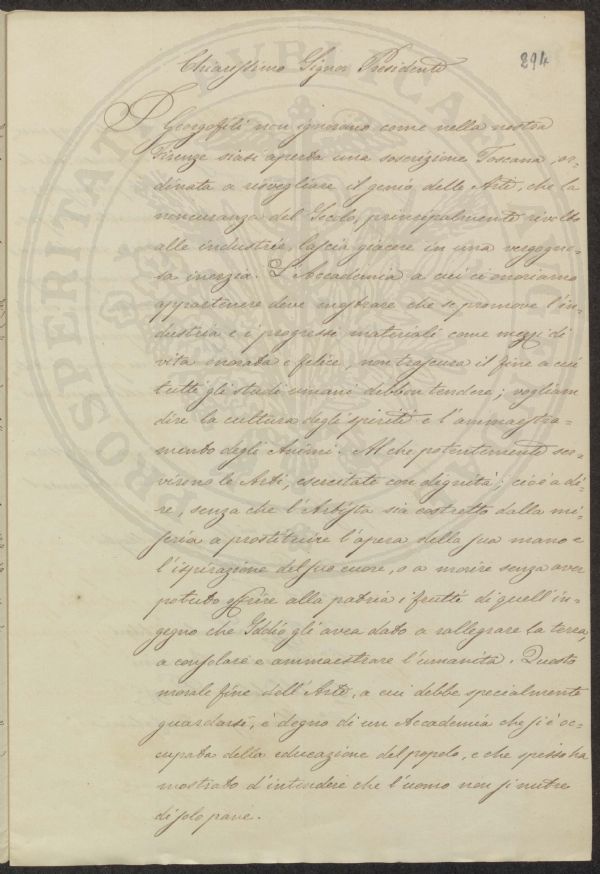 294
Chiarissimo Signor Presidente
I Georgofili non ignorano come nella nostra
Firenze siasi aperta una soscrizione Toscana, or-
dinata a risvegliare il genio delle Arti, che la
noncuranza del Secolo, principalmente rivolto
alle industrie, lascia giacere in una vergogno-
sa inerzia. L'Accademia a cui ci onoriamo
appartenere deve mostrare che se promove l'in-
dustria e i progressi materiali come mezzi di
vita onorata e felice, non trascura il fine a cui
tutti gli studi umani debbon tendere; vogliam
dire la cultura degli spiriti e l'ammaestra-
mento degli Animi. Al che potentemente ser-
virono le Arti, esercitate con dignità; cioè a di-
re, senza che l'Artista sia costretto dalla mi-
seria a prostituire l'opera della sua mano e
l'ispirazione del suo cuore, o a morire senza aver
potuto offrire alla patria i frutti di quell'in-
gegno che Iddio gli avea dato a rallegrare la terra,
a consolare e ammaestrare l'umanità. Questo
morale fine dell'Arte, a cui debbe specialmente
guardarsi, è degno di un Accademia che si è oc-
cupata della educazione del popolo, e che spesso ha
mostrato d'intendere che l'uomo non si nutre
di solo pane.
PROSPERITATI PUBLICAE AUGENDAE